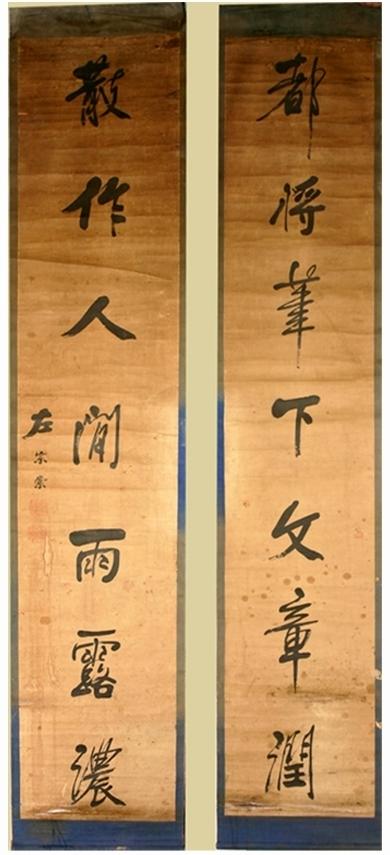 都将筆下文章潤
散作人間雨露濃
左宗棠